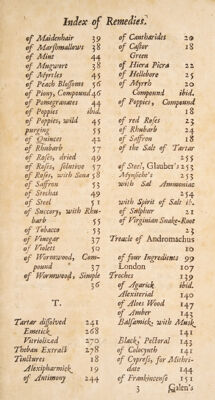 Index of Remedies.
of Maidenhair 39
of Marshmallows 38
of Mint 44
of Mugwort 38
of Myrtles 45
of Peach Blossoms 56
of Piony, Compound 46
of Pomegranates 44
of Poppies ibid.
of Poppies, wild 45
purging 55
of Quinces 42
of Rhubarb 57
of Roses, dried 49
of Roses, solutive 57
of Roses, with Sena 58
of Saffron 53
of Stechas 49
of Steel 51
of Succory, with Rhu-
barb
of Tobacco 53
of Vinegar 37
of Violets 50
of Wormwood, Com-
pound 37
of Wormwood, Simple
36
T.
Tartar dissolved 241
Emetick 268
Vitriolized 270
Theban Extract 278
Tinctures 18
Alexipharmick 19
of Antimony 244
of Cantharides 20
of Castor 18
Green
of Hiera Picra 22
of Hellebore 25
of Myrrh 20
Compound ibid.
of Poppies, Compound
18
of red Roses 23
of Rhubarb 24
of Saffron 18
of the Salt of Tartar
255
of Steel, Glauber's 253
Mynsicht's 253
with Sal Ammoniac
254
with Spirit of Salt ib.
of Sulphur 21
of Virginian Snake-Root
23
Treacle of Andromachus
10
of four Ingredients 99
London 107
Troches 139
of Agarick ibid.
Alexiterial 140
of Aloes Wood 147
of Amber 143
Balsamick, with Musk
141
Black, Pectoral 143
of Colocynth 141
of Cypress, for Mithri-
date 144
of Frankincense 151
3 Galen's